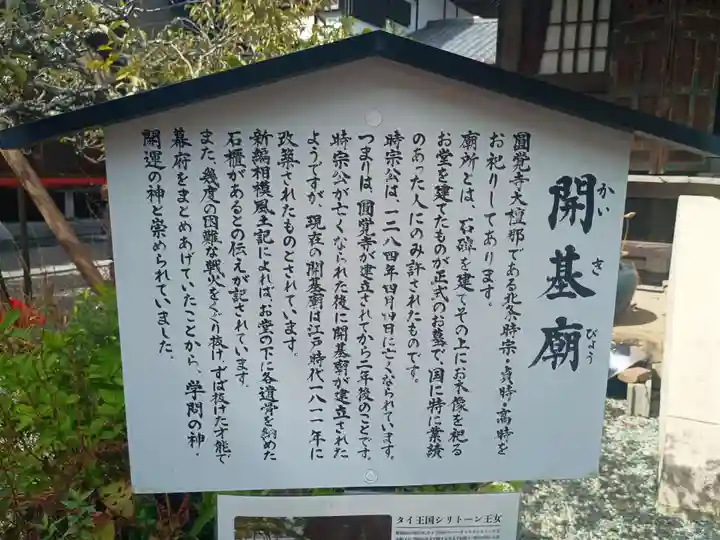 開基廟
かいきびょう
圓覚寺大檀那である北条時宗・貞時・高時を
お祀りしてあります。
廟所とは、石碑を建てその上にお木像を祀る
お堂を建てたものが正式のお墓で、国に特に業績
のあった人にのみ許されたものです。
時宗公は、一二八四年四月四日に亡くなられています。
つまりは、圓覚寺が建立されてから二年後のことです。
時宗公が亡くなられた後に開基廟が建立された
ようですが、現在の開基廟は江戸時代一八一一年に
改築されたものとされています。
新編相模風土記によれば、お堂の下に各遺骨を納めた
石櫃があるとの伝えが記されています。
また、幾度の困難な戦火をくぐり抜けずば抜けた才能で
幕府をまとめあげていたことから、学問の神・
開運の神と崇められていました。
タイ王国シリントーン王女